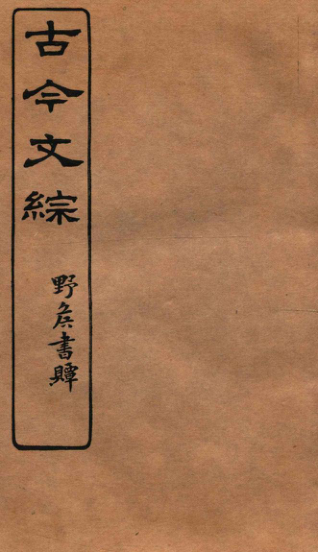 古今文綜
野侯書𧸘